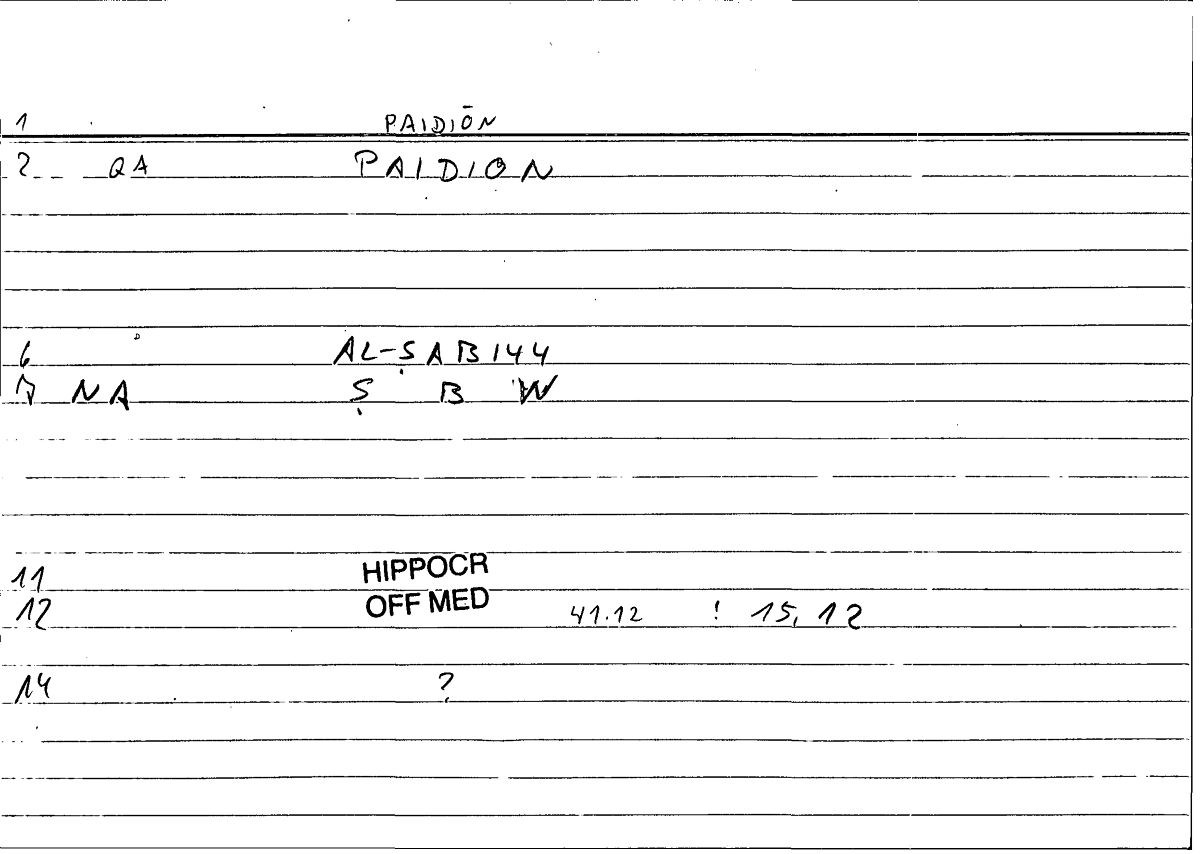 1 PAIDIŌN
2 QA PAIDION
6 AL-ṢAB144
7 NA Ṣ B W
11 HIPPOCR
12 OFF MED 41.12 ! 15, 12
14 ?